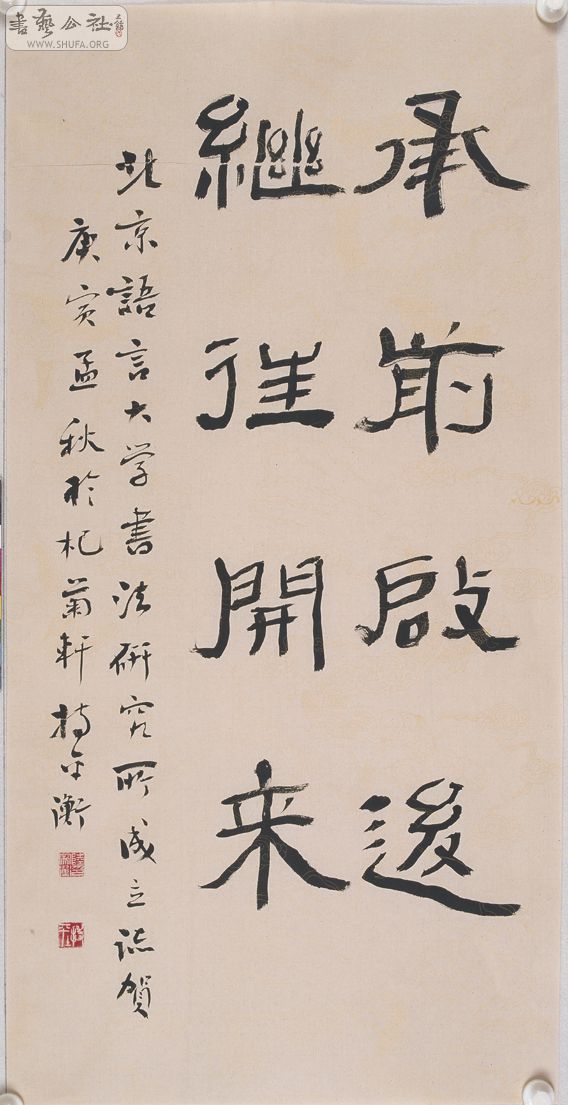 書藝公社
WWW.SHUFA.ORG
承前啟後
繼往開来
北京語言大学書法研究所成立誌賀
庚寅孟秋於杞菊軒持平衡